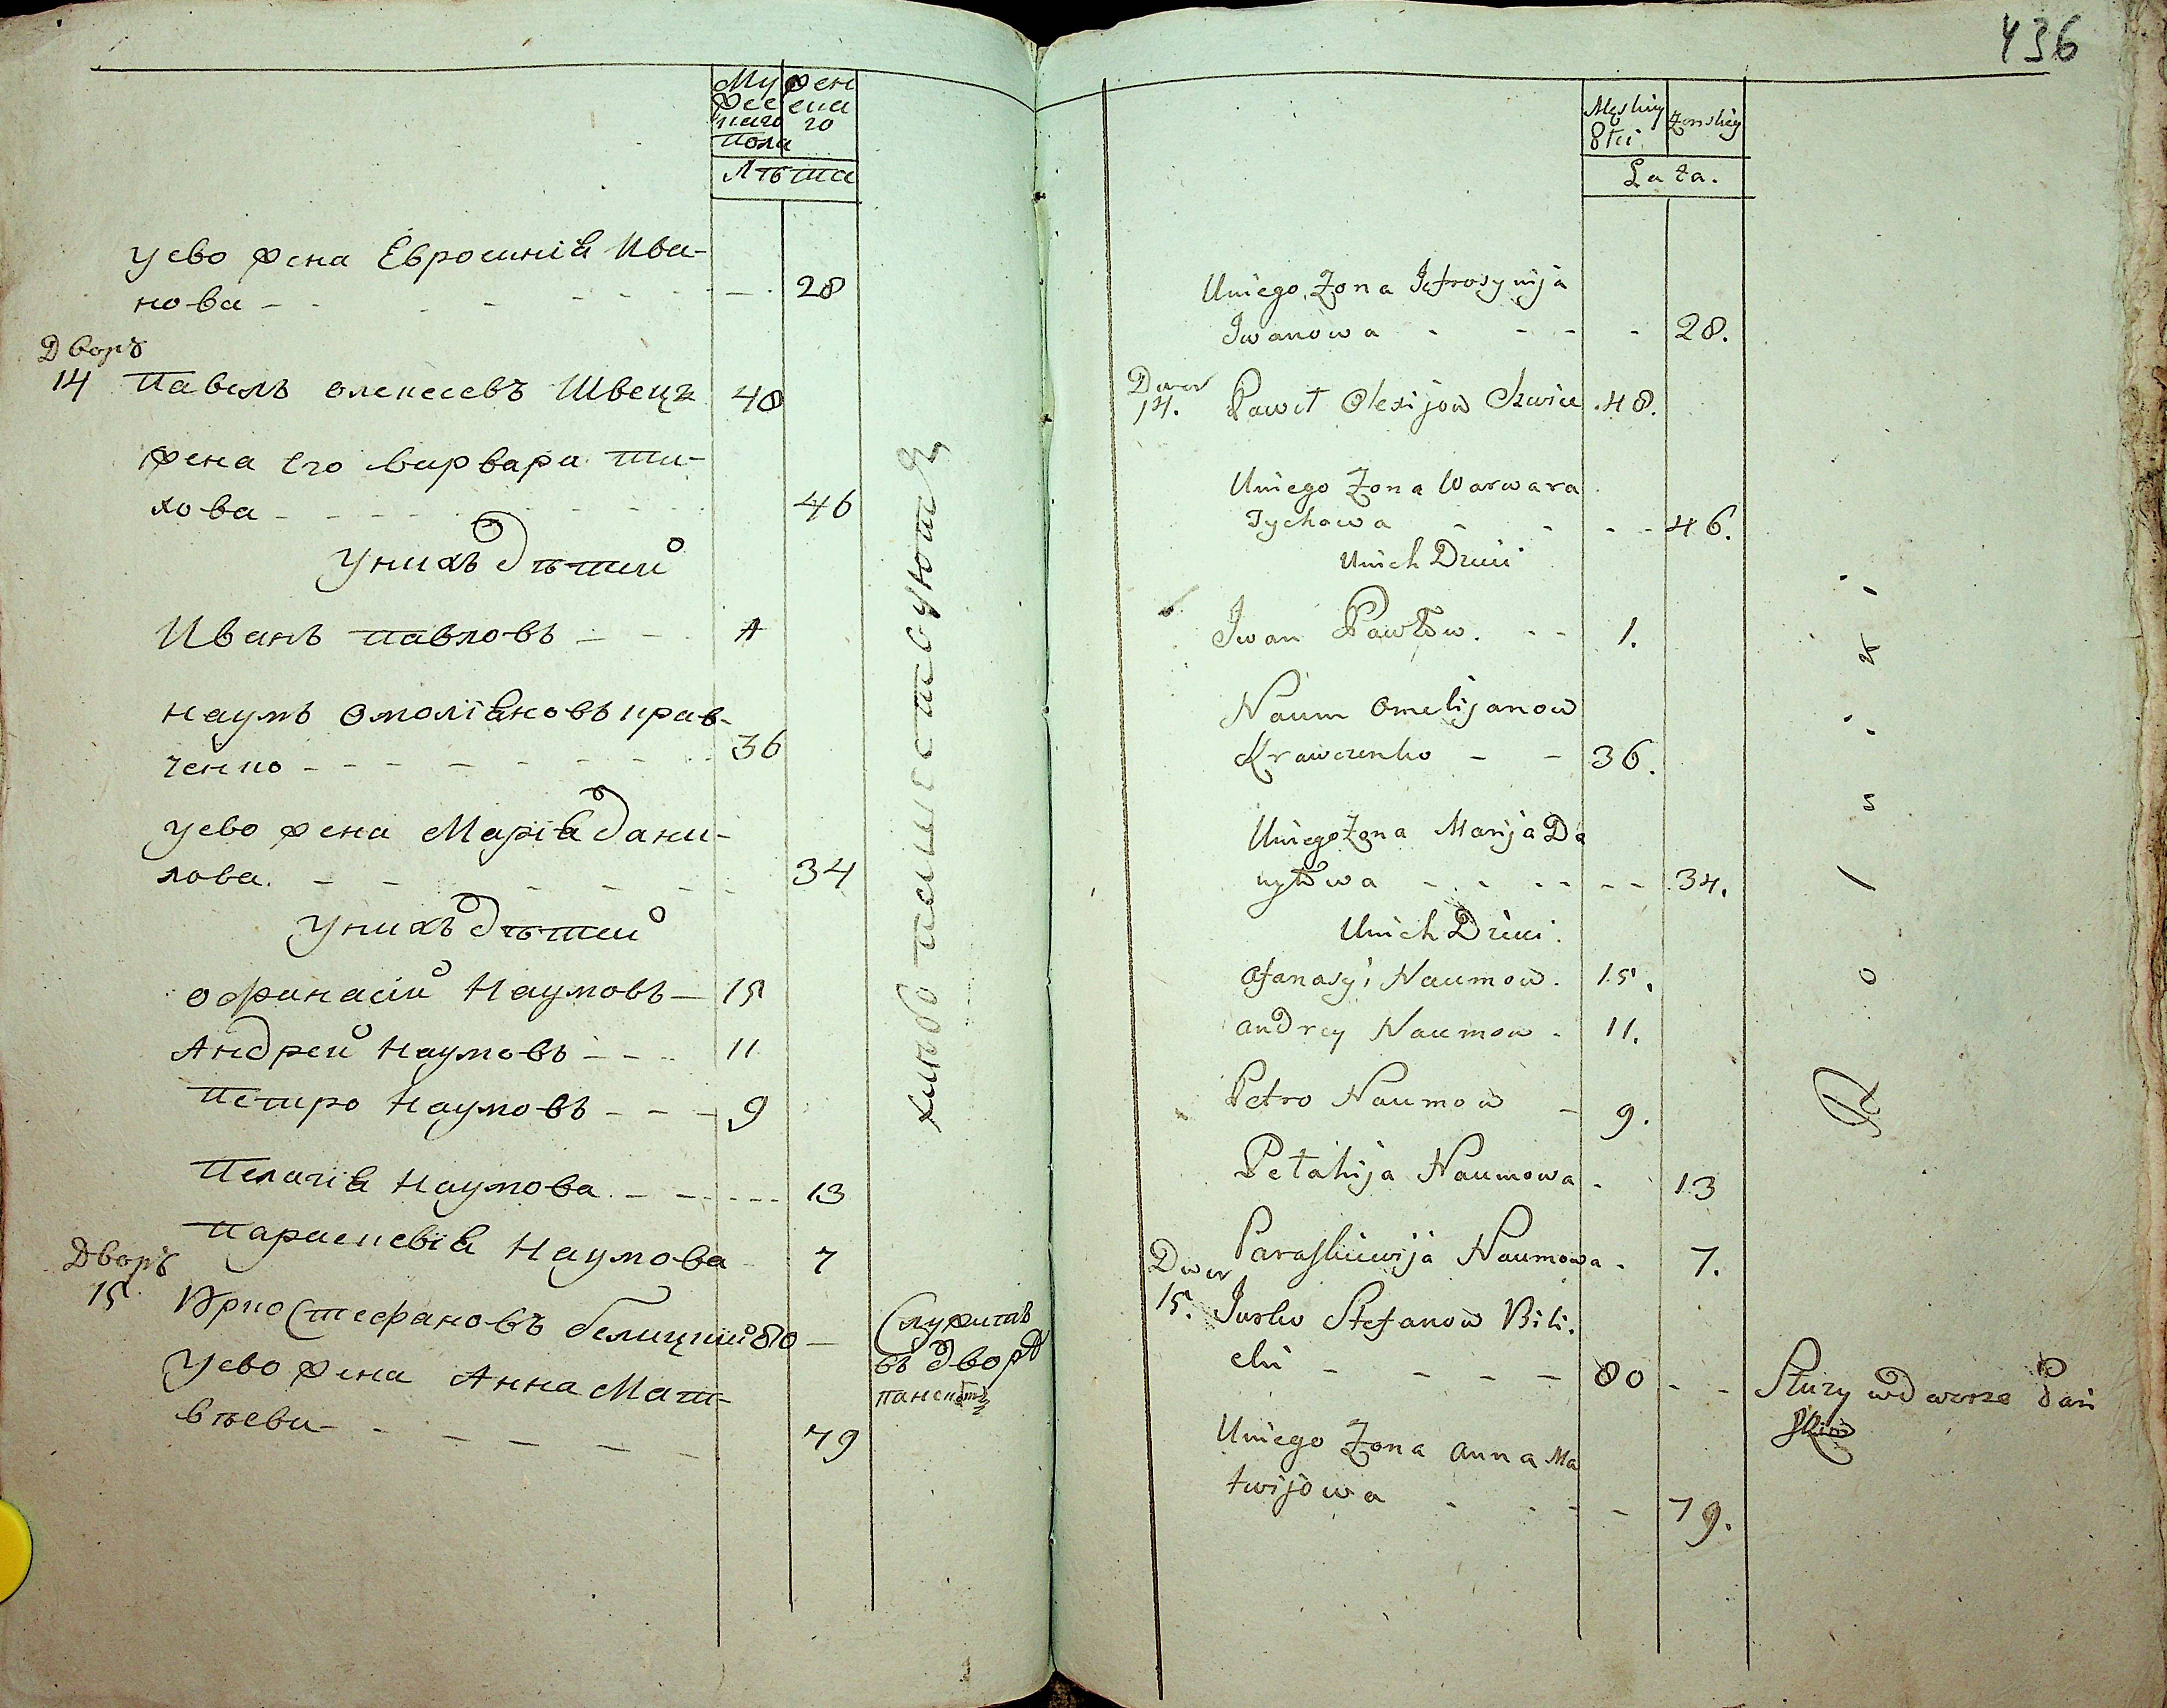 Му
жес
каго
Пола
жен
ска
го
Лѣта
уево жена Евросиніѧ Ива-
нова - - - - - - - 28
Дворъ
14 Павелъ олексеевъ Швецъ 48
жена Его варвара ти-
хова - - - - - 46
унихъ дѣтей
Иванъ павловъ - - 1
наумъ Омеліѧновъ крав-
ченко - - - - - - - 36
уево жена Маріѧ дани-
лова. - - - - - - - 34
унихъ дѣтей
офанасій Наумовъ - 15
Андрей Наумовъ - - - 11
Петро Наумовъ - - - 9
Пелагіѧ Наумова - - - - - 13
Параскевіѧ Наумова - 7
Дворъ
15 Юрко Стефановъ белицкий 80 -
уево жена Анна Мат-
вѣева - - - - - - 79
хлѣбопашествуютъ
Служитъ
въ дворѣ
436
Męskiey
Płci
Żenskiey
Lata.
Uniego Żona Jefrosynija
Iwanowa - - - - 28.
Dwor
14. Paweł Olexijow Szwiec 48.
Uniego Żona Warwara
Tychowa - - - - 46.
Unich Dzieci
Iwan Pawłow. - - 1.
Naum Omelijanow
Krawczenko - - 36.
Uniego Żona Marija Da
nyłowa - - - - - - 34.
Unich Dzieci.
Ofanasyi Naumow. 15.
Andrey Naumow - 11.
Petro Naumow - 9.
Pełahija Naumowa - 13
Paraskiewija Naumowa - 7.
Dwor
15. Jurko Stefanow Bili.
cki - - - - 80 - -
Uniego Żona Anna Ma
twijowa - - - - 79.
Rolniki
Służy wdworze Pań
skim